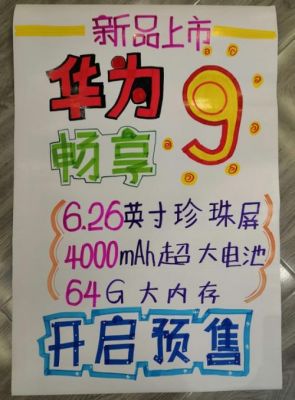 新品上市
华为 9
畅享
6.26英寸珍珠屏
4000mAh超大电池
64G大内存
开启预售